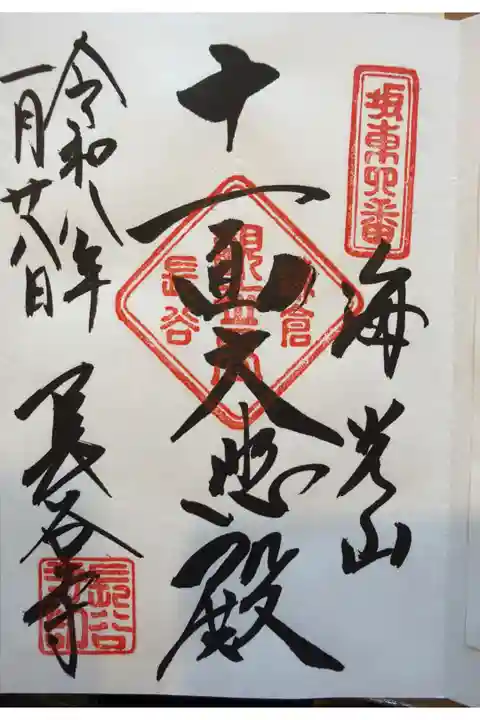 坂東四番
海光山
十一面大悲殿
鎌倉
観世音
長谷
令和八年
一月廿八日
長谷寺